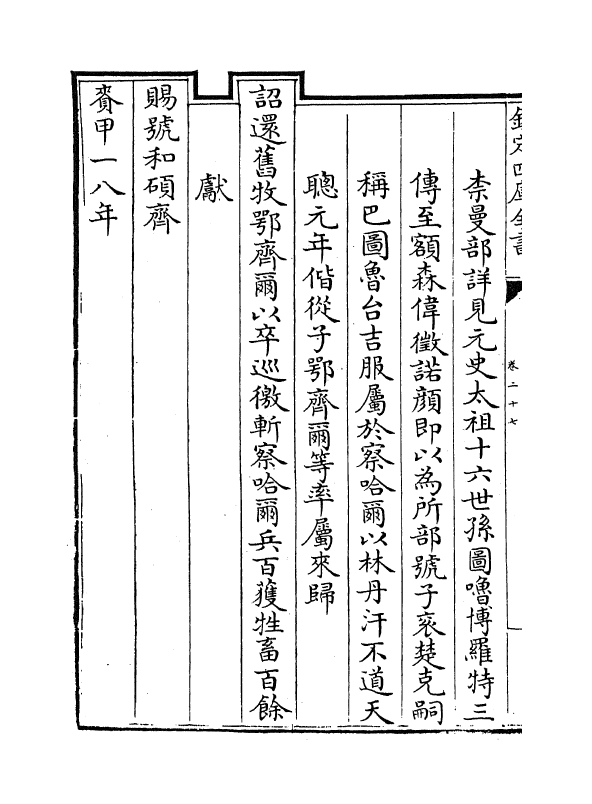 欽定四庫全書
卷二十七
柰曼部詳見元史太祖十六世孫圖嚕博羅特三
傳至額森偉徵諾顔即以為所部號子衮楚克嗣
稱巴圖魯台吉服屬於察哈爾以林丹汗不道天
聰元年偕從子鄂齊爾等率屬來歸
詔還舊牧鄂齊爾以卒巡徼斬察哈爾兵百獲牲畜百餘
獻
賜號和碩齊
賚甲一八年